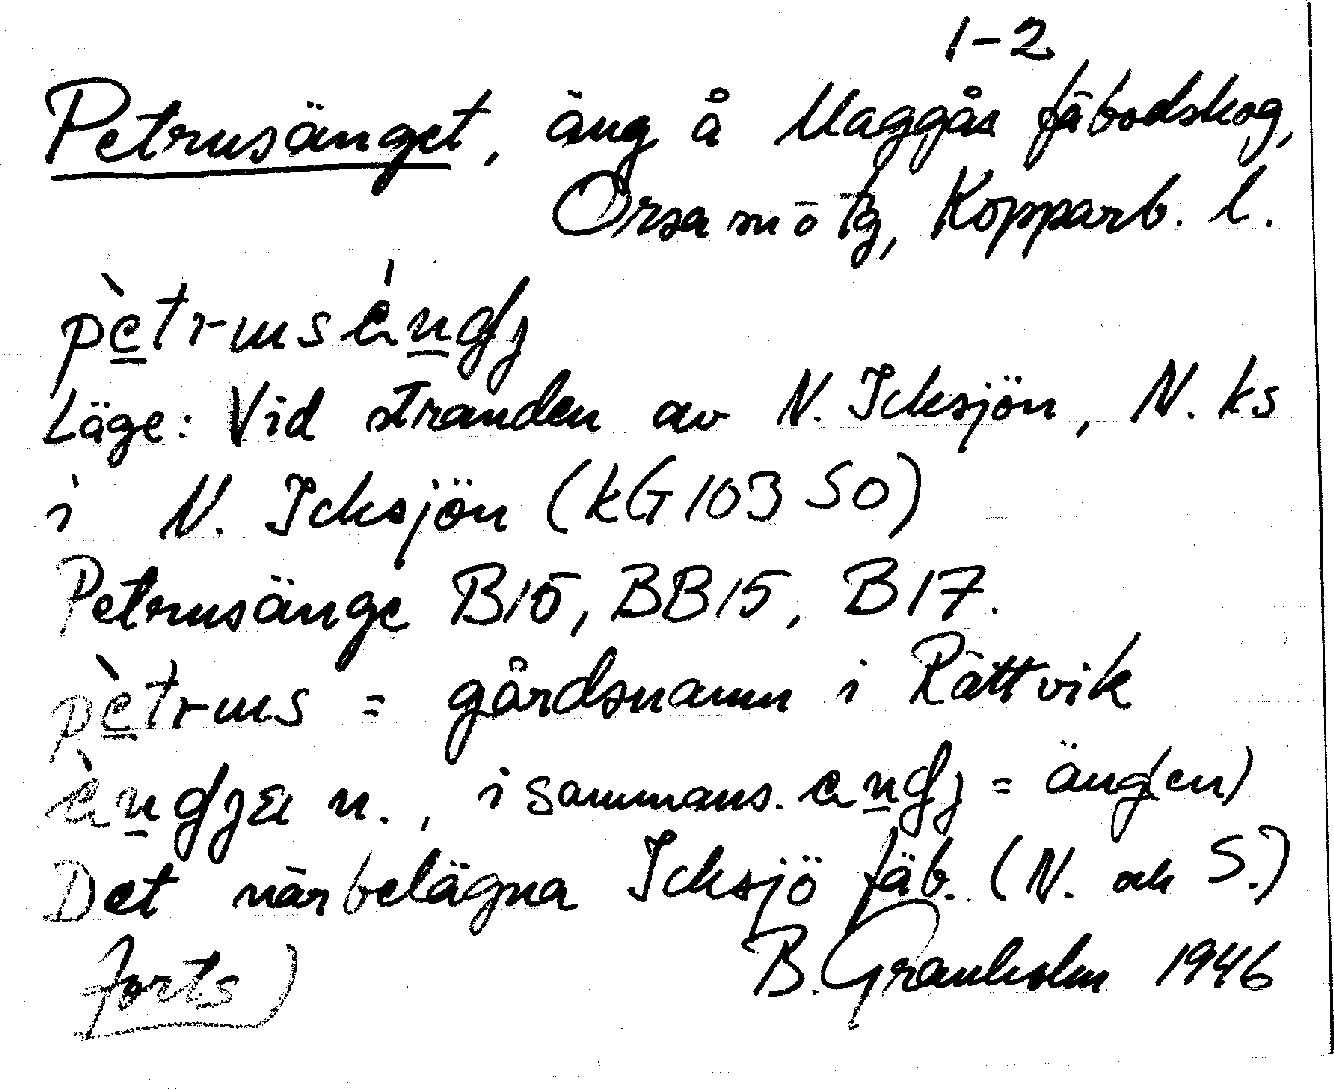 1-2
Petrusänget, äng å Maggås fäbodskog,
Orsa sn o tg, Kopparb. l.
pètrusèngj
Läge: Vid stranden av N. Icksjön, N. ks
i N. Icksjön (kG 103 SO)
Petrusänge B15, BB15, B17.
pètrus = gårdsnamn i Rättvik
èngjä n., i sammans. engj = äng(en)
Det närbelägna Icksjö fäb. (N. och S.)
Forts) B. Granholm 1946